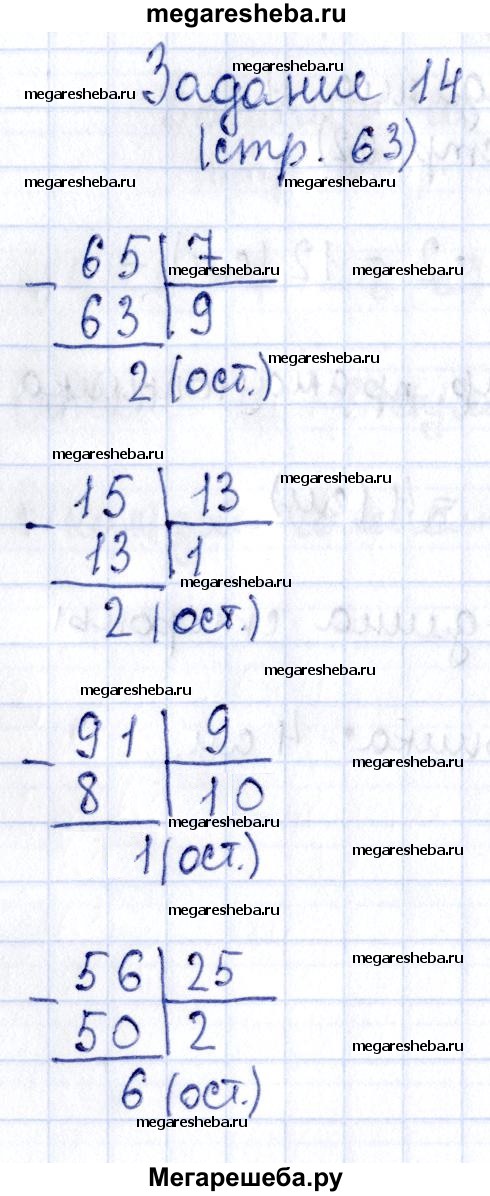 megaresheba.ru
megaresheba.ru
Задание 14
megaresheba.ru
(стр. 63)
megaresheba.ru megaresheba.ru
- 65 7
megaresheba.ru megaresheba.ru
63 9
megaresheba.ru
2 (ост.)
megaresheba.ru
- 15 13
megaresheba.ru
13 1
megaresheba.ru
2 (ост.)
megaresheba.ru
megaresheba.ru
- 91 9
megaresheba.ru
8 10
megaresheba.ru
1 (ост.)
megaresheba.ru
megaresheba.ru
- 56 25
megaresheba.ru
50 2
megaresheba.ru
6 (ост.)
megaresheba.ru
Мегарешеба.ру